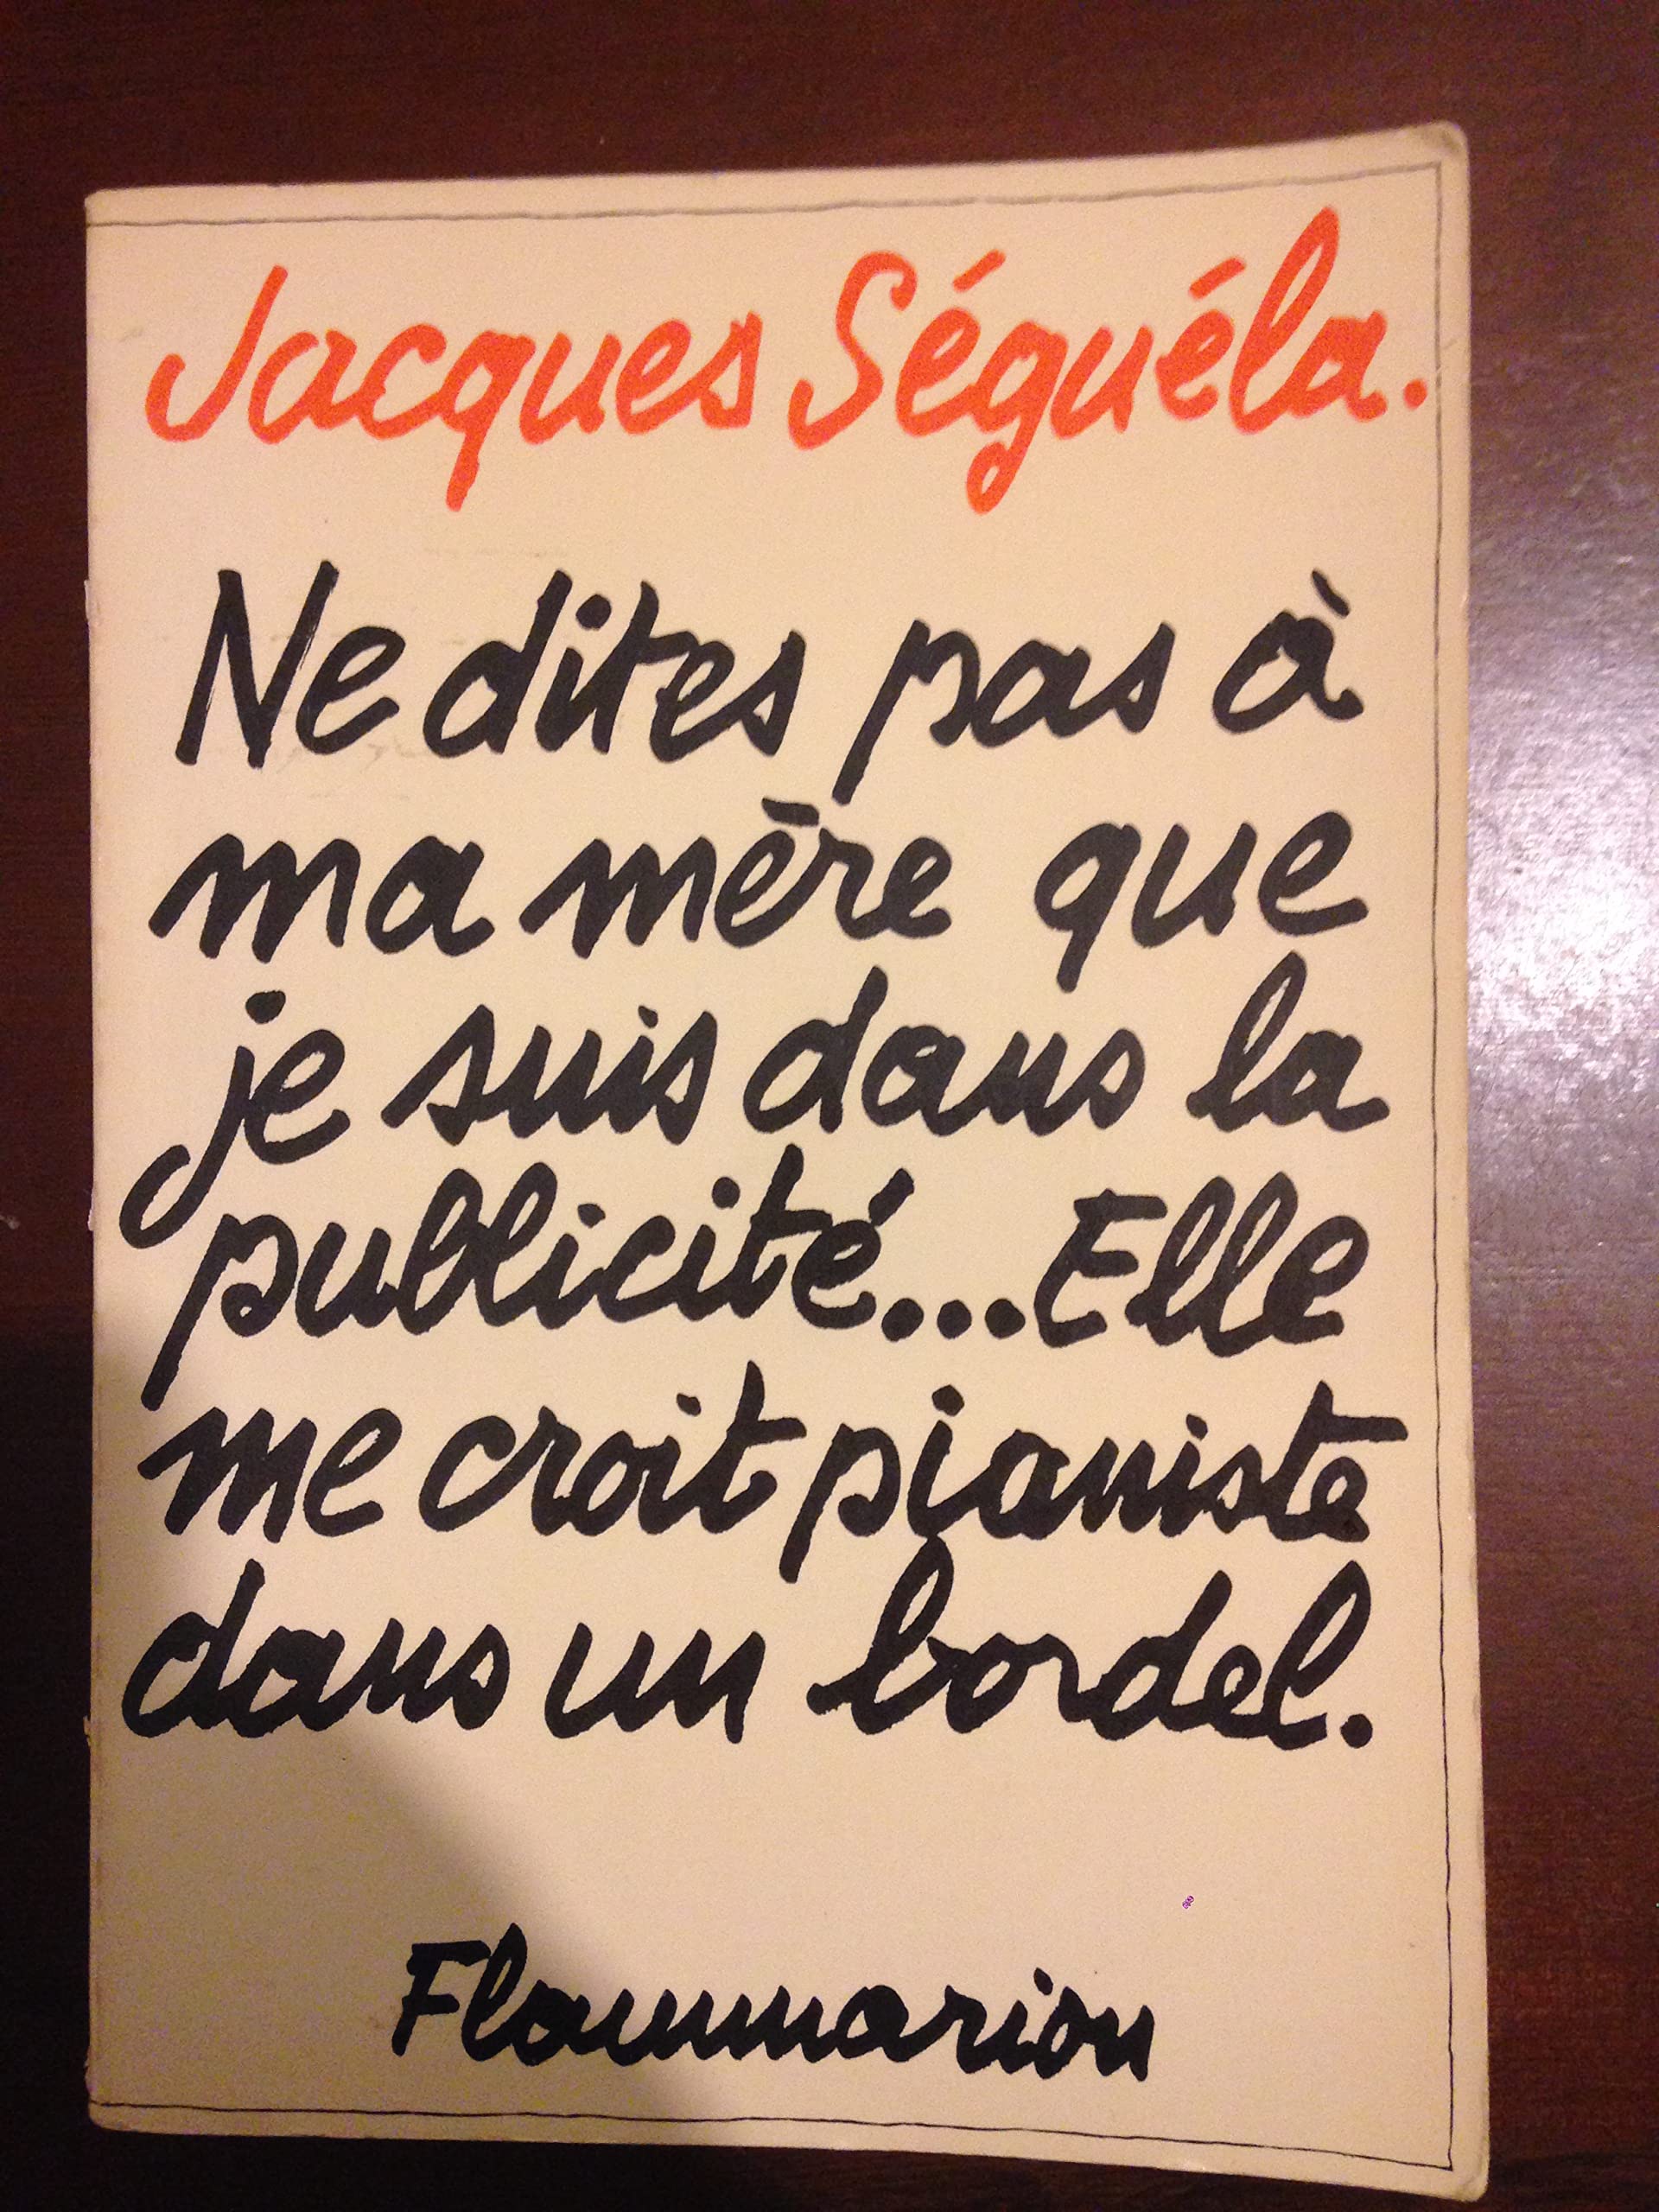 Jacques Séguéla.
Ne dites pas à
ma mère que
je suis dans la
publicité... Elle
me croit pianiste
dans un bordel.
Flammarion